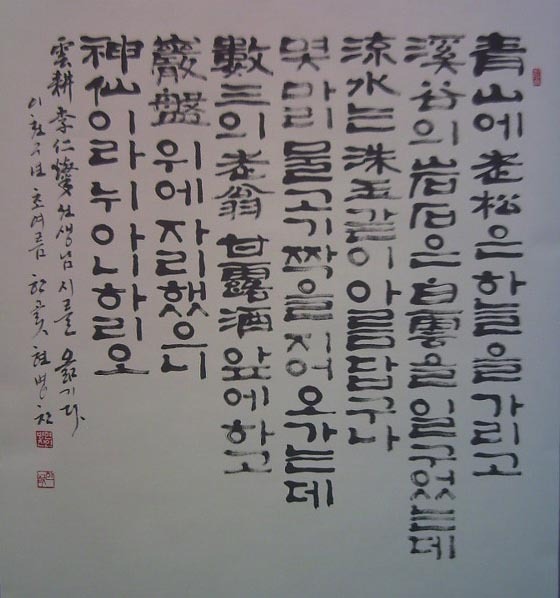 青山에 老松은 하늘을 가리고
溪谷의 岩石은 白雪을 일구었는데
流水는 洙玉같이 아름답구나
몇마리 물고기 짝을 지어 오가는데
數三의 老翁 甘露酒 앞에하고
巖盤 위에 자리했으니
神仙이라 아니 누아 하리오
雲耕 李仁燮 선생님 시를 옮기다.
이천구년 초여름 한글꽃 현병찬